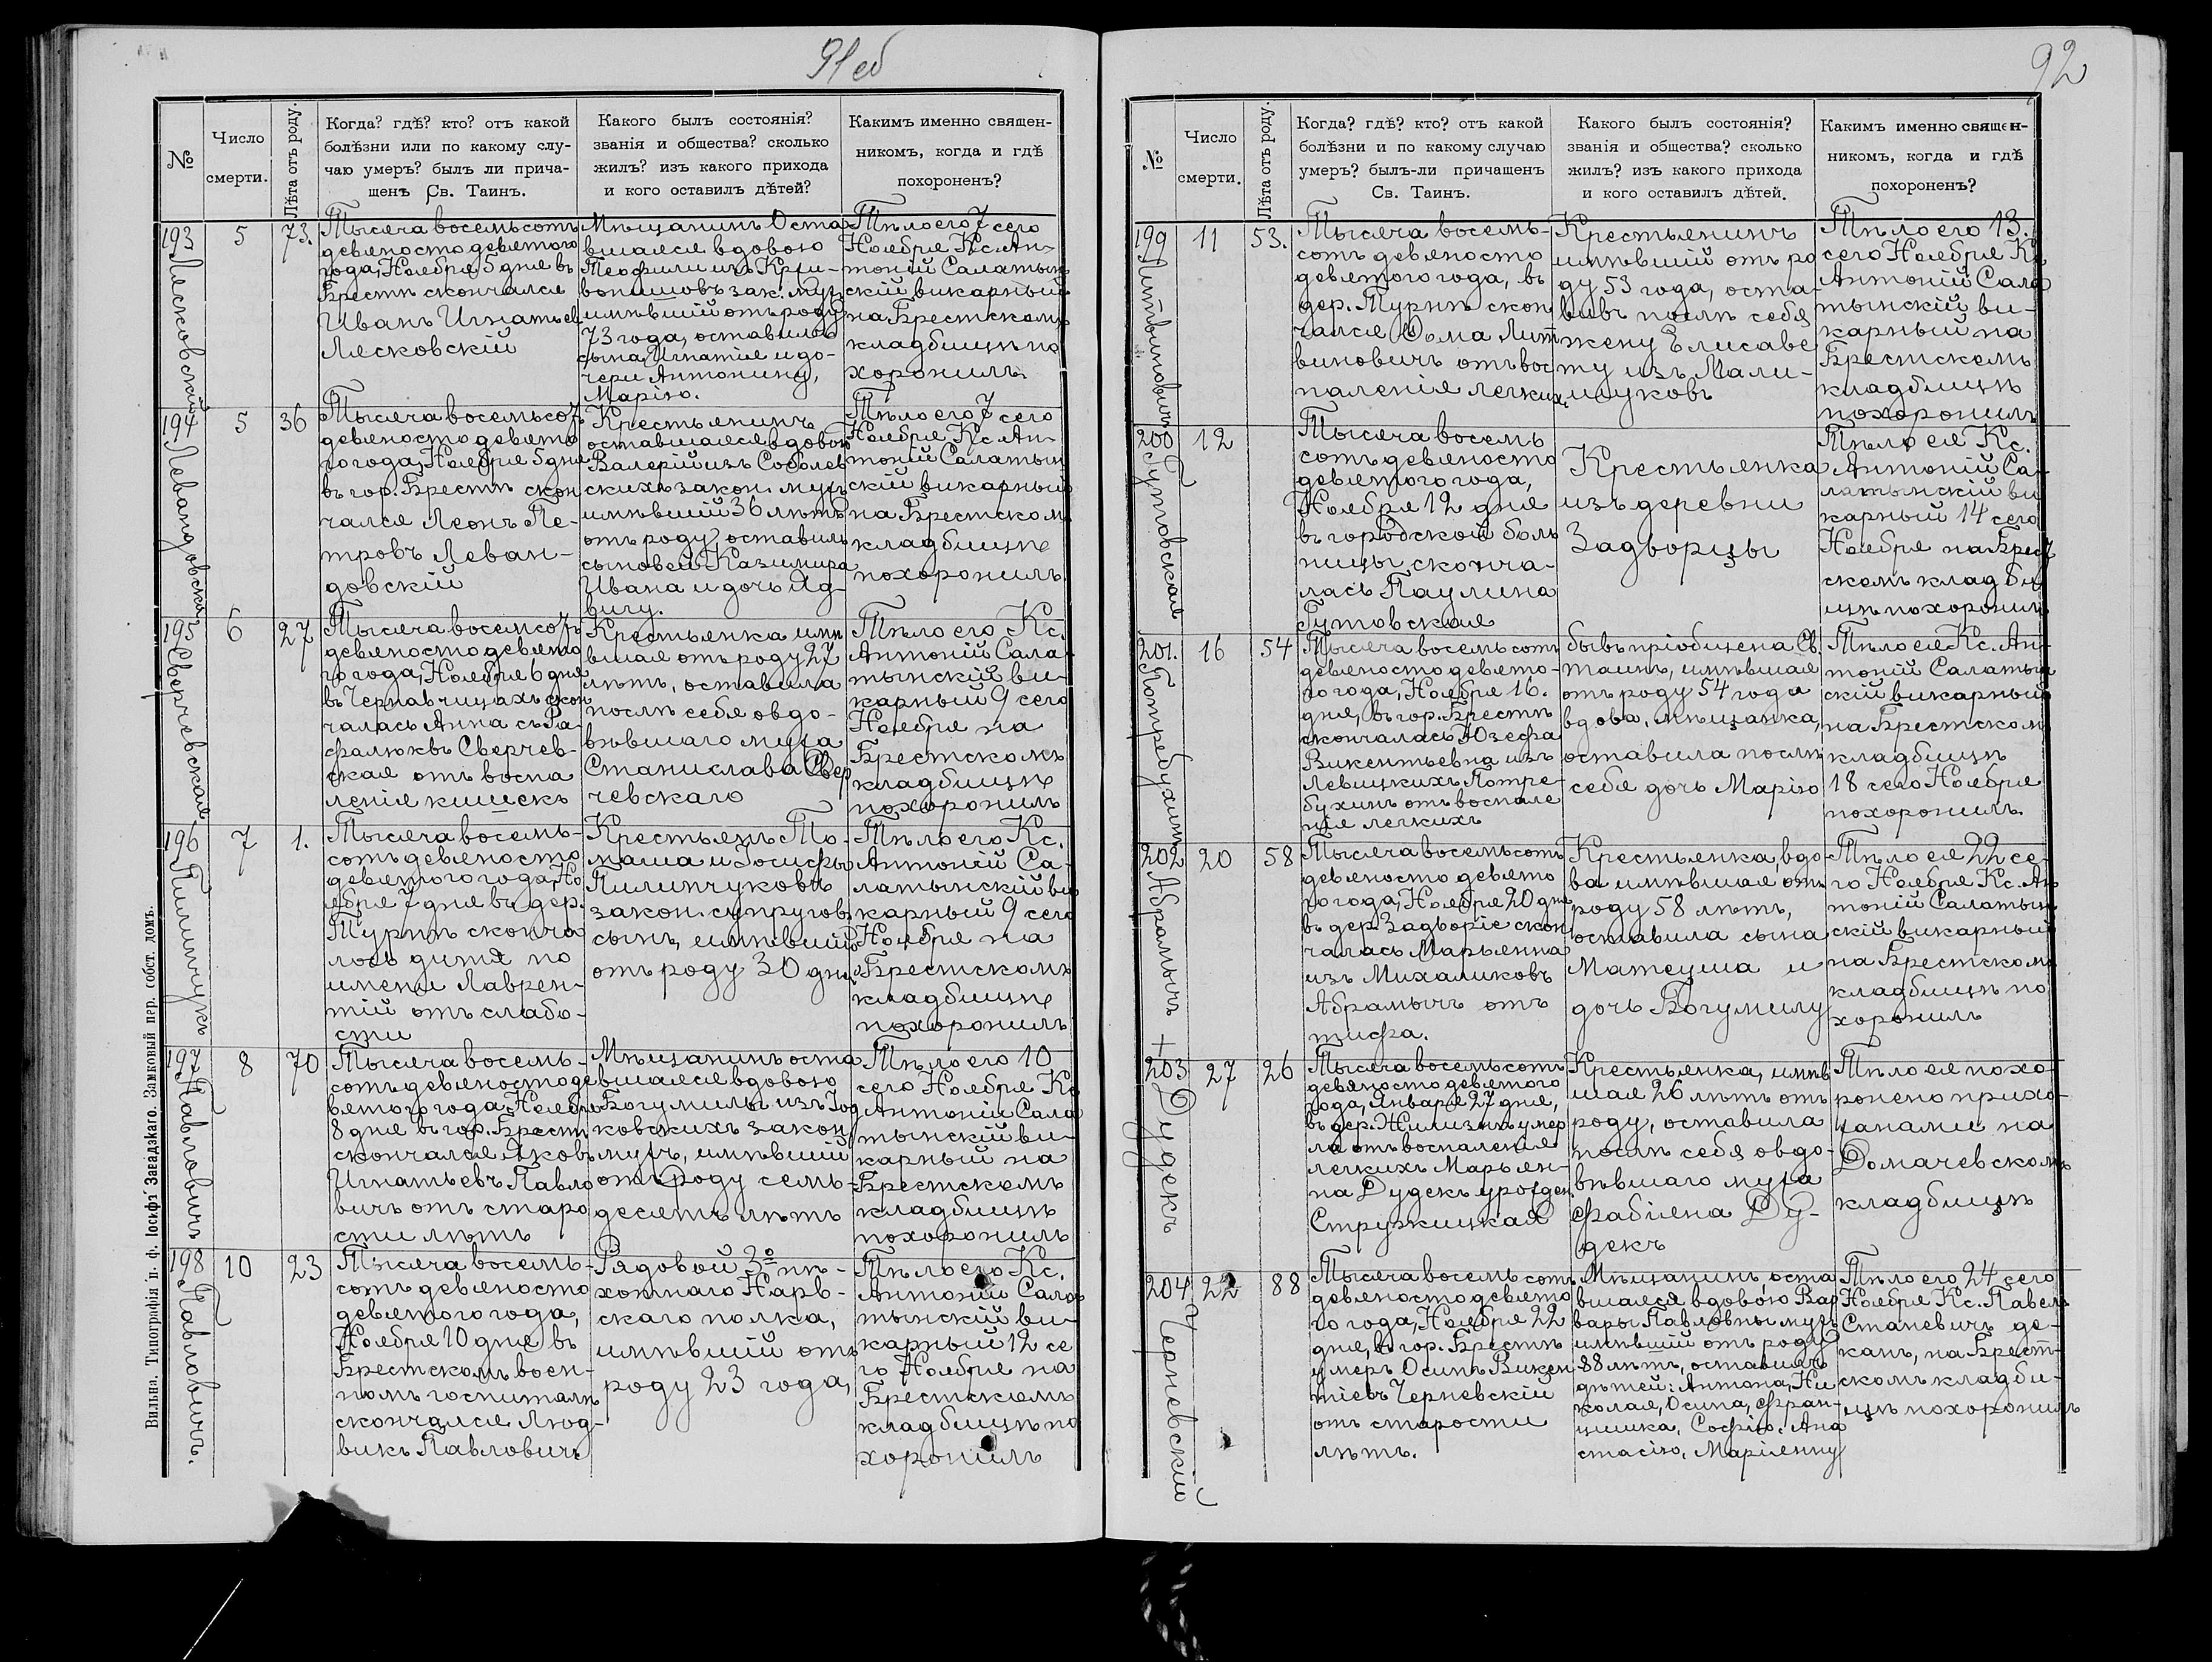 91 об
№
Число
смерти.
Лѣта отъ роду.
Когда? гдѣ? кто? отъ какой
болѣзни или по какому слу-
чаю умеръ? былъ ли прича-
щенъ Св. Таинъ.
Какого былъ состоянія?
званія и общества? сколько
жилъ? изъ какого прихода
и кого оставилъ дѣтей?
Какимъ именно священ-
никомъ, когда и гдѣ
похороненъ?
193
Лясковскій
5
73.
Тысяча восемьсотъ
девяносто девятого
года, Ноября 5 дня въ
Брестѣ скончался
Иванъ Игнатьев
Лясковскій
Мѣщанинъ Оста
вшаяся вдовою
Теофили изъ Кри-
воницовъ зак. мужъ
имѣвшій отъ роду
73 года, оставилъ
сына Игнатія и до-
чери Антонину,
Марію.
Тѣло его 7 сего
Ноября Кс. Ан-
тоній Салатын
скій викарный
на Брестскомъ
кладбищѣ по
хоронилъ.
194
Левандовскій
5
36
Тысяча восемьсотъ
девяносто девято
го года, Ноября 5 дня
въ гор. Брестѣ скон
чался Леонъ Пе-
тровъ Леван-
довскій
Крестьянинъ
оставшаяся вдовою
Валерій изъ Соболев
скихъ закон. мужъ
имѣвшій 36 лѣтъ
отъ роду, оставилъ
сыновей Казимира
Ивана и дочь Яд-
вигу.
Тѣло его 7 сего
Ноября Кс. Ан-
тоній Салатын
скій викарный
на Брестскомъ
кладбищѣ
похоронилъ.
195
Сверчевская
6
27
Тысяча восемсотъ
девяносто девято
го года, Ноября 6 дня
въ Чернавчицахъ скон
чалась Анна съ Ра-
фалюкъ Сверчев-
ская отъ воспа
ленія кишекъ
Крестьянка имѣ
вшая отъ роду 27
лѣтъ, оставила
послѣ себя овдо-
вѣвшаго мужа
Станислава Свер
чевскаго
Тѣло его Кс.
Антоній Сала-
тынскій ви-
карный 9 сего
Ноября на
Брестскомъ
кладбищѣ
похоронилъ
196
Пилипчукъ
7
1.
Тысяча восемь-
сотъ девяносто
девятого года, Но
ября 7 дня въ дер.
Турнѣ сконча
лось дитя по
имени Лаврен-
тій отъ слабо-
сти
Крестьянъ То-
маша и Іосифы
Пилипчуковъ
закон. супруговъ
сынъ, имѣвшій
отъ роду 30 дней
Тѣло его Кс.
Антоній Са-
латынскій ви
карный 9 сего
Ноября на
Брестскомъ
кладбищѣ
похоронилъ
197
Павловичъ
8
70
Тысяча восемь-
сотъ девяносто де
вятого года, Ноября
8 дня въ гор. Брестѣ
скончался Яковъ
Игнатьевъ Павло
вичъ отъ старо
сти лѣтъ
Мѣщанинъ оста
вшаяся вдовою
Богумилы изъ Іод
ковскихъ закон
мужъ, имѣвшій
отъ роду семь-
десятъ лѣтъ
Тѣло его 10
сего Ноября Кс
Антоній Сала
тынскій ви-
карный на
Брестскомъ
кладбищѣ
похоронилъ
198
Павловичъ.
10
23
Тысяча восемь-
сотъ девяносто
девятого года,
Ноября 10 дня въ
Брестскомъ воен-
номъ госпиталѣ
скончался Люд-
викъ Павловичъ
Рядовой 3го пѣ-
хотнаго Нарв-
скаго полка,
имѣвшій отъ
роду 23 года,
Тѣло его Кс.
Антоній Сала
тынскій ви-
карный 12 се
го Ноября на
Брестскомъ
кладбищѣ по
хоронилъ
Вильна. Типографія п. ф. Іосифъ Завадзкаго. Замковый пер. собст. домъ.
92
№
Число
смерти.
Лѣта отъ роду.
Когда? гдѣ? кто? отъ какой
болѣзни и по какому случаю
умеръ? былъ-ли причащенъ
Св. Таинъ.
Какого былъ состоянія?
званія и общества? сколько
жилъ? изъ какого прихода
и кого оставилъ дѣтей.
Какимъ именно священ-
никомъ, когда и гдѣ
похороненъ?
199
Литвиновичъ
11
53.
Тысяча восемь-
сотъ девяносто
девятого года, въ
дер. Турнѣ скон
чался Ѳома Лит
виновичъ отъ вос
паленія легкихъ
Крестьянинъ
имѣвшій отъ ро
ду 53 года, оста-
вивъ послѣ себя
жену Елисаве
ту изъ Мали-
щуковъ
Тѣло его 13.
сего Ноября Кс
Антоній Сала
тынскій ви-
карный на
Брестскомъ
кладбищѣ
похоронилъ
200
Гутовская
12
Тысяча восемь
сотъ девяносто
девятого года,
Ноября 12 дня
въ городской боль
ницы, сконча-
лась Паулина
Гутовская
Крестьянка
изъ деревни
Задворцы
Тѣло ея Кс.
Антоній Са-
латынскій ви
карный 14 сего
Ноября на Брест
скомъ кладби
щѣ похоронилъ
201.
Потребухинъ
16
54
Тысяча восемь сотъ
девяносто девято-
го года, Ноября 16.
дня, въ гор. Брестѣ
скончалась Юзефа
Викентьевна изъ
Левицкихъ Потре-
бухинъ отъ воспале
нія легкихъ
бывъ пріобщена Св.
таинъ, имѣвшая
отъ роду 54 года
вдова, мѣщанка,
оставила послѣ
себя дочь Марію
Тѣло ея Кс. Ан-
тоній Салатын
скій викарный
на Брестскомъ
кладбищѣ
18 сего Ноября
похоронилъ.
202
Абрамычъ
20
58
Тысяча восемьсотъ
девяносто девято
го года, Ноября 20 дня
въ дер. Задворіе скон
чалась Марьянна
изъ Михаликовъ
Абрамычъ отъ
тифа.
Крестьянка, вдо-
ва имѣвшая отъ
роду 58 лѣтъ,
оставила сына
Матеуша и
дочь Богумилу
Тѣло ея 22 се-
го Ноября Кс. Ан
тоній Салатын
скій викарный
на Брестскомъ
кладбищѣ по
хоронилъ
203
Дудекъ
27
26
Тысяча восемьсотъ
девяносто девятого
года, Января 27 дня,
въ дер. Жилизнѣ умер
ла отъ воспаленія
легкихъ Марьян-
на Дудекъ урожден
Стружицкая
Крестьянка, имѣв
шая 26 лѣтъ отъ
роду, оставила
послѣ себя овдо-
вѣвшаго мужа
Фабіяна Ду-
декъ
Тѣло ея похо-
ронено прихо-
жанами на
Домачевскомъ
кладбищѣ
204
Черневскій
22
88
Тысяча восемь сотъ
девяносто девято
го года, Ноября 22
дня, въ гор. Брестѣ
умеръ Осипъ Викен
тіевъ Черневскій
отъ старости
лѣтъ.
Мѣщанинъ, оста
вшаяся вдовою Вар
вары Павловны мужъ
имѣвшій отъ роду
88 лѣтъ, оставилъ
дѣтей: Антона, Ни
колая, Осипа, Фран-
цишка, Софію, Ана
стасію, Маріянну
Тѣло его 24 сего
Ноября Кс. Павелъ
Станевичъ де-
канъ, на Брест-
скомъ кладби-
щѣ похоронилъ